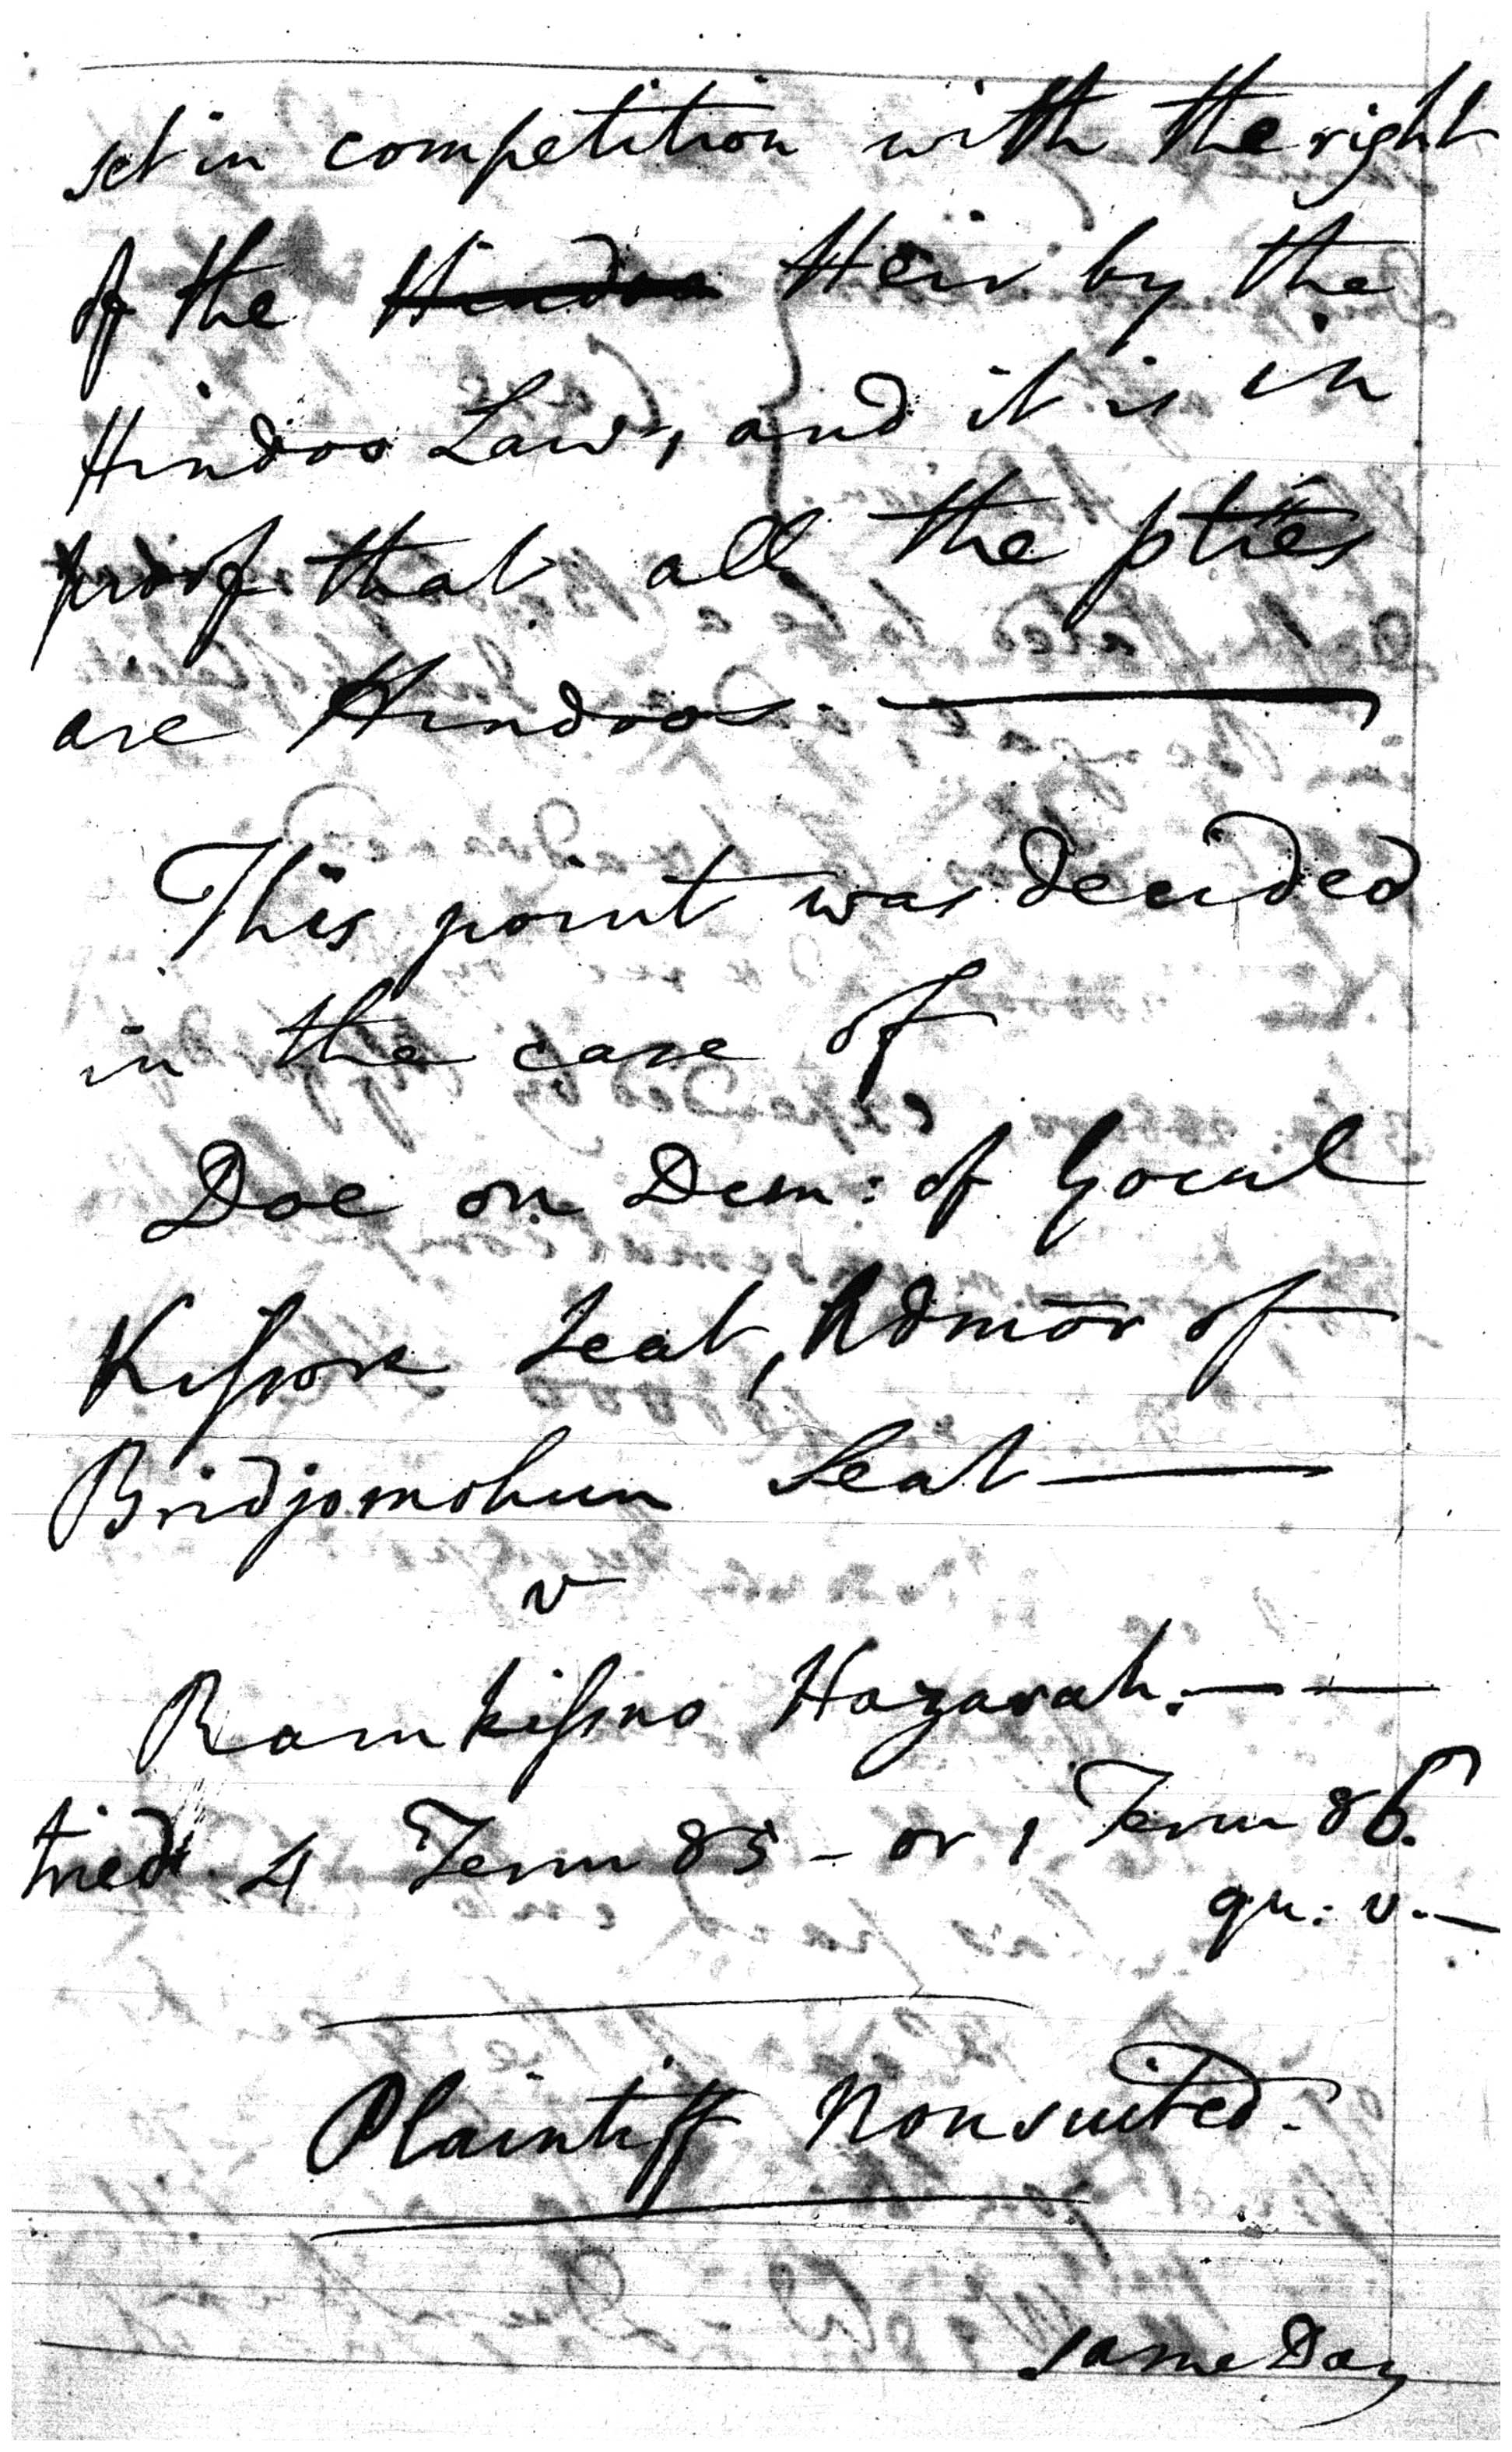 set in competition with the right
of the Hindoo Heir by the
Hindoo Law, and it is in
proof that all the pties
are Hindoos.
This point was decided
in the case of
Doe on Dem: of Gocul
Kissore Seat, Admor of
Bridjomohun Seat
v
Ramkissno Hazarah.
tried 4 Term 85 - or 1 Term 86.
qu: v.
Plaintiff Nonsuited.
same Day